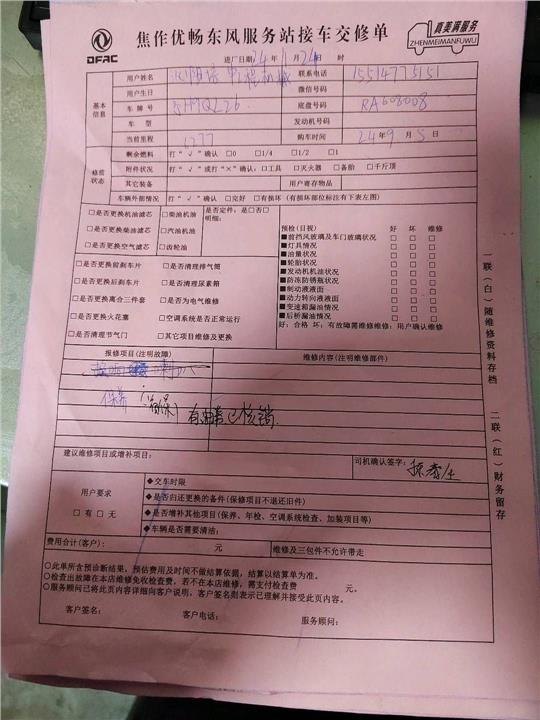 DFAC
焦作优畅东风服务站接车交修单
真美满服务
ZHENMEIMANFUWU
进厂日期:24年1月24日 时
基本信息
用户姓名 联系电话 15514775151
用户生日 微信号码
车牌号 5HMQL26 底盘号码 RA608008
车型 发动机号码
当前里程 1277 购车时间 24年9月5日
修前状态
剩余燃料 打“√”确认 □0 □1/4 □1/2 □1
附件状况 打“√”或打“×”确认:□工具 □灭火器 □备胎 □千斤顶
其它装备 用户寄存物品
车辆外部情况 打“√”确认 □完好 □有损坏(有损坏部位标注在下表左图)
□是否更换机油滤芯 □柴油机油
□是否更换柴油滤芯 □汽油机油
□是否更换空气滤芯 □齿轮油
是否定件:是□否□
明细:
□是否更换前刹车片 □是否清理排气筒
□是否更换后刹车片 □是否清理尿素箱
□是否更换离合三件套 □是否为电气维修
□是否更换火花塞 □空调系统是否正常运行
□是否清理节气门 □其它项目维修及更换
预检(目视) 好 坏 维修
■前挡风玻璃及车门玻璃状况 □ □ □
■灯具情况 □ □ □
■油量状况 □ □ □
■轮胎状况 □ □ □
■发动机机油状况 □ □ □
■防冻防锈瓶状况 □ □ □
■制动液液面 □ □ □
■动力转向液液面 □ □ □
■变速箱漏油情况 □ □ □
■后桥漏油情况 □ □ □
好:合格 坏:有故障需维修维修:用户确认维修
报修项目(注明故障) 维修内容(注明维修部件)
保养(首保)有油增已核销
建议维修项目或增补项目:
司机确认签字:
用户要求
□有□无
◆交车时限
◆是否归还更换的备件(保修项目不退还旧件)
◆是否增补其他项目(保养、年检、空调系统检查、加装项目等)
◆车辆是否需要清洁:
费用合计(客户): 元 维修及三包件不允许带走
○此单所含预诊断结果,预估费用及时间不做结算依据,结算以结算单为准。
○检查出故障在本店维修免收检查费,若不在本店维修,需支付检查费 元。
○服务顾问已将此页内容详细向客户说明,客户签名则表示已理解并接受此页内容。
客户签名: 客户电话: 服务顾问:
一联(白)随维修资料存档
二联(红)财务留存